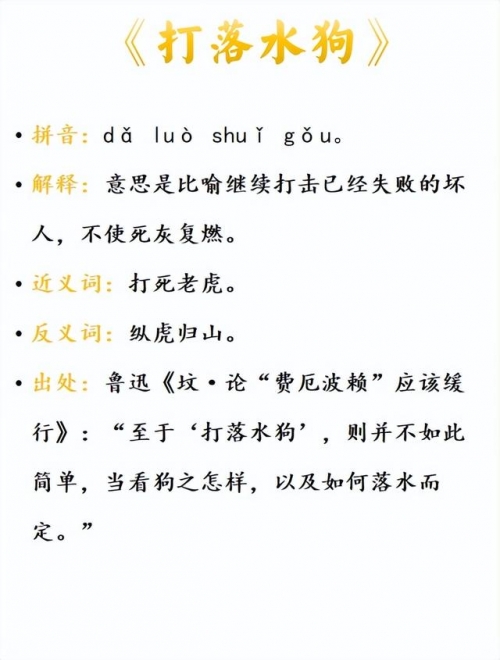 《打落水狗》
• 拼音：dǎ luò shuǐ gǒu。
• 解释：意思是比喻继续打击已经失败的坏
人，不使死灰复燃。
• 近义词：打死老虎。
• 反义词：纵虎归山。
• 出处：鲁迅《坟·论“费厄波赖”应该缓
行》：“至于‘打落水狗’，则并不如此
简单，当看狗之怎样，以及如何落水而
定。”